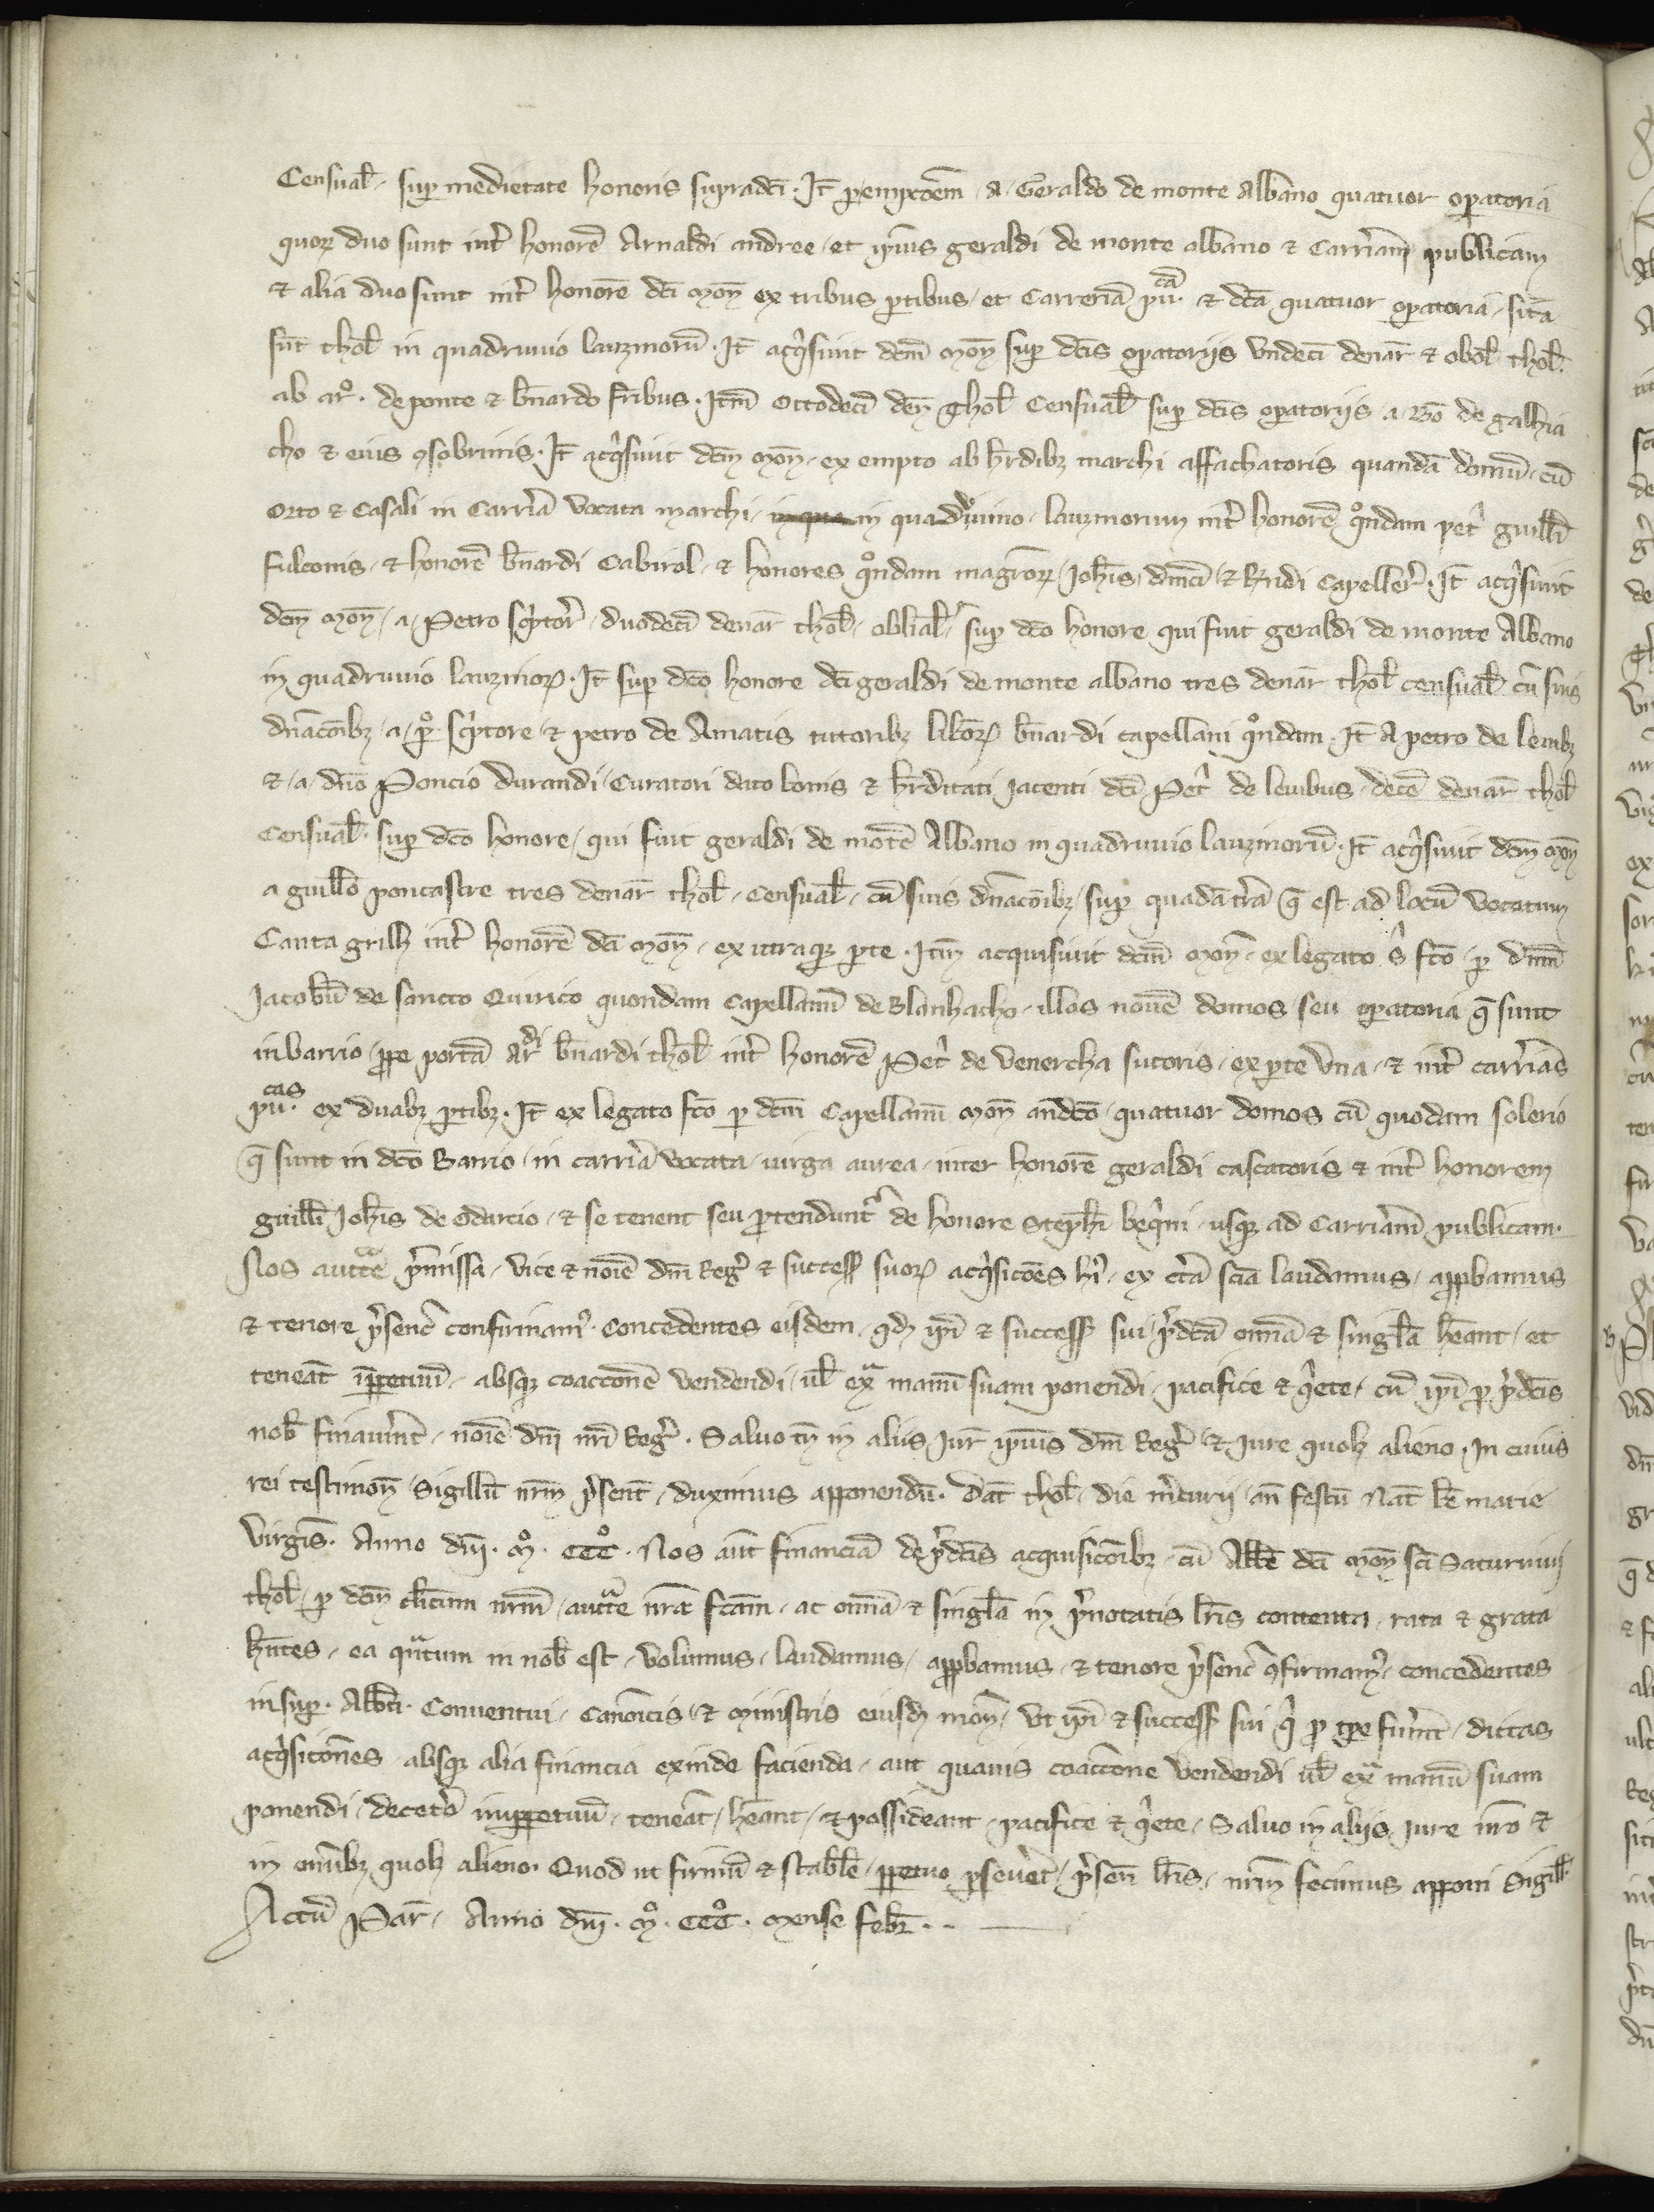 Censual̃ . sup̱ medietate honoris supradc̃i . Jt̃ p̱ empcõem a Geraldo de monte albano quatuor op̱atoria
quoꝝ duo sunt int̃ honorẽ Arnaldi andree . et ip̃ius geraldi de monte albano ⁊ Carrẽiam publicam
⁊ alia duo sunt int̃ honorẽ dc̃i Moñ ex tribus p̱tibus . et Carreriã pu.cã ⁊ dc̃a quatuor op̱atoria . sita
sũt thol̃ in quadruuio lauzinorũ . Jt̃ acq̃siuit dc̃m Moñ sup̱ dc̃is op̱atorijs vndecĩ denar̃ ⁊ obol̃ thol̃ .
ab ar̊ . de ponte ⁊ b̃nardo fr̃ibus . Jtm̃ Octodecĩ deñ Thol̃ Censual̃ sup̱ dc̃is op̱atorijs a Bõ de galhia
cho ⁊ eius ꝯsobrinis . Jt̃ acq̃siuit dc̃m Moñ . ex empto ab h̃rdibꝫ marchi affachatoris quandã domũ . cũ
Orto ⁊ Casali in Carrĩa Vocata marchi . in quadruuio . lauzinorum int̃ honorẽ q̊ndam pet̃ guill̃i
fulconis . ⁊ honorẽ b̃nardi Cabirol . ⁊ honores q̊ndam magr̃oꝝ . Joh̃is . dñici ⁊ R̃ndi Capeller̃ . Jt̃ acq̃siuit
dc̃m Moñ . a Petro sc̃ptor̃ . duodecĩ denar̃ thol̃ . oblial̃ . sup̱ dc̃o honore qui fuit geraldi de monte Albano
in quadruuio lauzinoꝝ . Jt̃ sup̱ dc̃o honore dc̃i geraldi de monte albano tres denar̃ thol̃ censual̃ cũ suis
dñacõibꝫ . a . p̊ . Sc̃ptore . ⁊ petro de Amatis tutoribꝫ lib̃oꝝ b̃nardi capellani q̊ndam . Jt̃ A petro de leuibꝫ
⁊ . a . dño Poncio Durandi . Curatori dato bonis ⁊ h̃rditati jacenti dc̃i Pet̃ de leuibus . decẽ denar̃ thol̃
Censual̃ . sup̱ dc̃o honore . qui fuit geraldi de mõte Albano in quadruuio lauzinorũ . Jt̃ acq̃siuit dc̃m Moñ
a guill̃o poncastre tres denar̃ thol̃ . Censual̃ . cũ suis dñacõibꝫ . sup̱ quadã tr̃a q̃ est ad locũ vocatum
Canta grilh int̃ honorẽ dc̃i Moñ . ex utraqꝫ p̱te . Jtm̃ acquisiuit dc̃m Moñ . ex legato s̃ fc̃o . p̱ dñm
Jacobũ de sancto Quirico quondam Capellanũ de Blanhacho . illos nouẽ domos seu op̱atoria q̃ sunt
in barrio . ꝓpe portã Ar̃di b̃nardi thol̃ int̃ honorẽ Pet̃ de Venercha sutoris . ex p̱te vna . ⁊ int̃ carrĩas
pu.cas ex duabꝫ p̱tibꝫ . Jt̃ ex legato fc̃o p̱ dc̃m Capellanũ Moñ andc̃o . quatuor domos cũ quodam solerio
q̃ sunt in dc̃o Barrio . in carrĩa vocata . uirga aurea . inter honorẽ geraldi cascatoris ⁊ int̃ honorem
guill̃i Joh̃is de Odarcio . ⁊ se tenent seu p̱tendunt̃ de honore Steph̃i beq̃ni . usqꝫ ad Carrĩam publicam .
Nos auct̃te p̃missa . Vice ⁊ noĩe dñi Reg̃ ⁊ success̃ suoꝝ acq̃sicões hĩ . ex c̃ta scĩa laudamus . app̱bamus
⁊ tenore p̃senc̃ confirmam⁹ . Concedentes eisdem . qd̃ ip̃i ⁊ success̃ sui . p̃dc̃a om̃ia ⁊ singl̃a h̃eant . et
teneãt inp̱petuũ . absqꝫ coaccõne vendendi . ul̃ ex̃ manũ suam ponendi . pacifice ⁊ q̃ete . cũ ip̃i ꝓ p̃dc̃is
nob̃ finauer̃t . noĩe dñi nr̃i Reg̃ . Saluo tñ in aliis Jur̃ ip̃ius dñi Reg̃ ⁊ Jure quolꝫ alieno . In cuius
rei testimoñ . Sigillũ nr̃m p̃sent̃ . duximus apponendũ . Dat̃ thol̃ . die m̃curij . añ festũ Nat̃ b̃e marie
Virgĩs . Anno dñi . M̊ . CCC̊ . Nos aut̃ financiã de p̃dc̃is acquisicõibꝫ . cũ Abb̃e dc̃i Moñ sc̃i Saturnini
thol̃ . p̱ dc̃m cl̃icum nr̃m . auct̃te nr̃a fc̃am . ac om̃ia ⁊ singl̃a in p̃notatis lr̃is contenta . rata ⁊ grata
h̃ntes . ea q̃tum in nob̃ est . volumus . laudamus . app̱bamus . ⁊ tenore p̃senc̃ ꝯfirmam⁹ . concedentes
insup̱ . Abb̃i . Conuentui . Canoĩcis ⁊ Ministris eiusd̃ moñ . Vt ip̃i ⁊ success̃ sui q̃ ꝓ tp̃e fuer̃t . dictas
acq̃sicõnes . absqꝫ alia financia exinde facienda . aut quauis coaccõne vendendi ul̃ ex̃ manũ suam
ponendi . decet̃o inp̱petuũ . teneãt . h̃eant . ⁊ possideant . pacifice ⁊ q̃ete . Saluo in alijs Jure nr̃o ⁊
in om̃ibꝫ quolꝫ alieno . Quod ut firmũ ⁊ stabl̃e . p̱petuo p̱seuer̃t . p̃sen lr̃is . nr̃m fecimus apponi Sigill̃ .
Actũ Par̃ . Anno dñi . M̊ . CCC̊ . Mense febr̃ . .